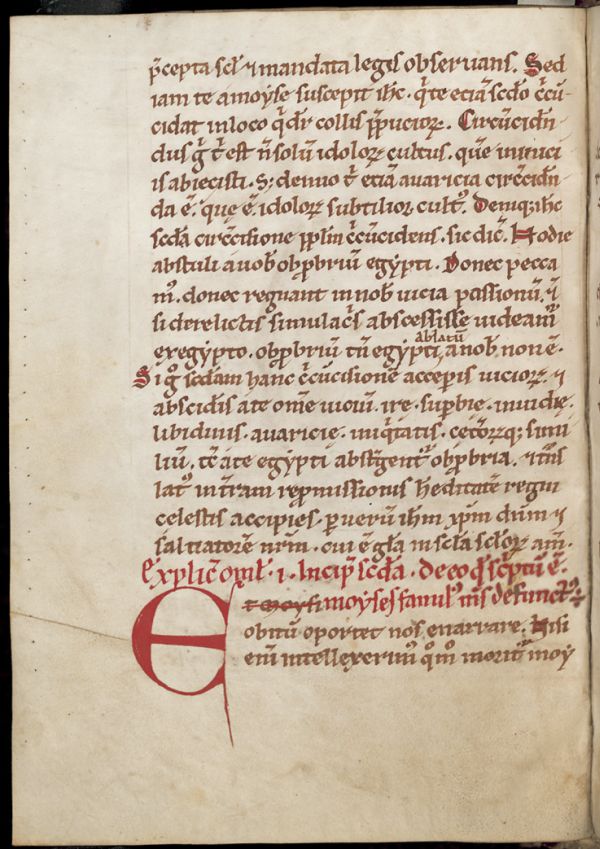 p̄cepta scł ⁊ mandata legis observans. Sed
iam te a moyse suscepit ihc. q̇te etiā scđo c̄cū-
cidat in loco q̇ dr̄ collis p̄puciorꝝ. Circūcidn̄
dus ḡ t̄ est n̄ solū idolorꝝ cultus. quē inimici
is abiecisti. S; denuo t̄ etiā avaricia circ̄cidn̄
da ē. quę ē idolorꝝ subtilior cultꝰ. Deniq; ihc
scđa circ̄cisione pp̄lm c̄cūcidens. sic dic̄. Hodie
abstuli a vob̄ obp̄briū egypti. Donec pecca
mꝰ. donec regnant in nob̄ vicia passionū. ⁊
si derelictis simulac̄s abscessisse videam̄
ex egypto. obp̄briū tn̄ egypti ablatū a nob̄ non ē.
Si ḡ scđam hanc c̄cūcisionē acceperis viciorꝝ. ⁊
abscidis a te om̄e viciū. ire. supbie. invidie.
libidinis. avaricie. iniq̇tatis. cet̄orꝝq; simi
liū. t̄c a te egypti abst̄gent̄ obp̄bria. ⁊
latꝰ in t̄ram rep̄missionis h̄editatē regni
celestis accipies. per verū ihm̄ xp̄m dn̄m ⁊
salvatorē nr̄m. cui ē gła in scła scłorꝝ am̄.
Explic̄ omł. i. Incip̄ scđa. de eo q̇ sc̄ptū ē.
Et moysi moyses famulꝰ m̄s defunctꝰ ÷
obitū oportet nos enarrare. Nisi
enī intellexerimꝰ q̇m̄o morit̄ moy